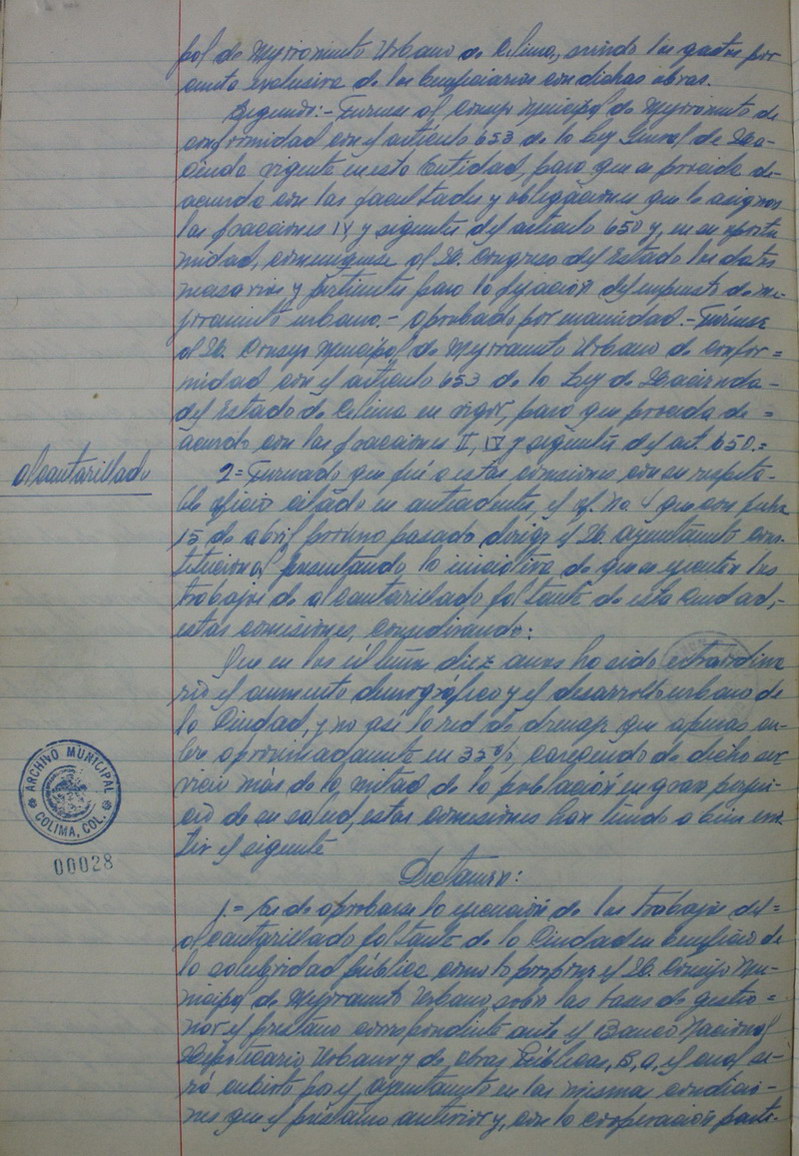 pal de Mejoramiento Urbano de Colima, siendo los gastos por
cuenta exclusiva de los beneficiarios con dichas obras.
Segundo:- Túrnese al Consejo Municipal de Mejoramiento de
conformidad con el artículo 653 de la Ley General de Ha-
cienda vigente en esta Entidad, para que se proceda de-
acuerdo con las facultades y obligaciones que le asignan
las fracciones IX y siguientes del artículo 650 y, en su oportu
nidad, comuníquese al H. Congreso del Estado los datos
necesarios y pertinentes para la fijación del impuesto de me-
joramiento urbano.- Aprobado por unanimidad.- Túrnese
al H. Consejo Municipal de Mejoramiento Urbano de confor=
midad con el artículo 653 de la Ley de Hacienda-
del Estado de Colima en vigor, para que proceda de=
acuerdo con las fracciones II, IX y siguientes del art. 650.=
Alcantarillado
2= Turnado que fué a estas comisiones con su respeta-
ble oficio citado en antecedentes, el of. No. que con fecha
15 de abril próximo pasado dirige el H. Ayuntamiento Cons-
titucional presentando la iniciativa de que se ejecuten los
trabajos de alcantarillado faltante de esta Ciudad,
estas comisiones, considerando:
Que en los últimos diez años ha sido extraordina
rio el aumento demográfico y el desarrollo urbano de
la Ciudad, y no así la red de drenaje que apenas cu-
bre aproximadamente en 35%, careciendo de dicho ser
vicio más de la mitad de la población en gran perjui-
cio de su salud, estas comisiones han tenido a bien emi-
tir el siguiente
Dictamen:
1= Es de aprobarse la ejecución de los trabajos del=
alcantarillado faltante de la Ciudad en beneficio de
la salubridad pública como lo propone el H. Consejo Mu-
nicipal de Mejoramiento Urbano, sobre las bases de gestio=
nar el préstamo correspondiente ante el Banco Nacional
Hipotecario, Urbano y de Obras Públicas, S.A, el cual se-
rá cubierto por el Ayuntamiento en las mismas condicio-
nes que el préstamo anterior y, con la cooperación parti-
ARCHIVO MUNICIPAL
COLIMA, COL.
00028